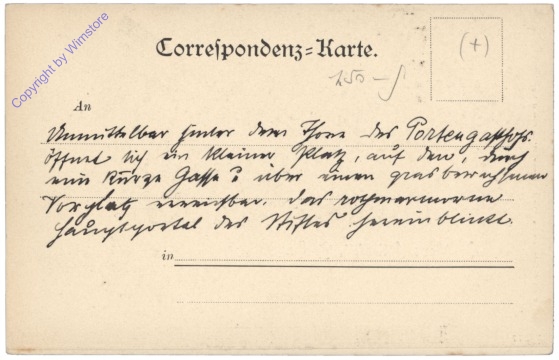 Copyright by Wimstore
Correspondenz=Karte.
(+)
250 -
An
Unmittelbar hinter dem Thore des Pfortengasthofs.
öffnet sich ein kleiner Platz, auf den, durch
eine kurze Gasse u über einen grasbewachsenen
Vorplatz erreichbar. das rothmarmorne
Hauptportal des Stiftes hereinblickt.
in